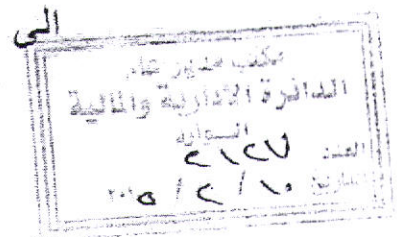 الى
مكتب مدير عام
الدائرة الادارية والمالية
الـواردة
العدد: ٢١٢٧
التاريخ: ١٠ / ٢ / ٢٠١٥